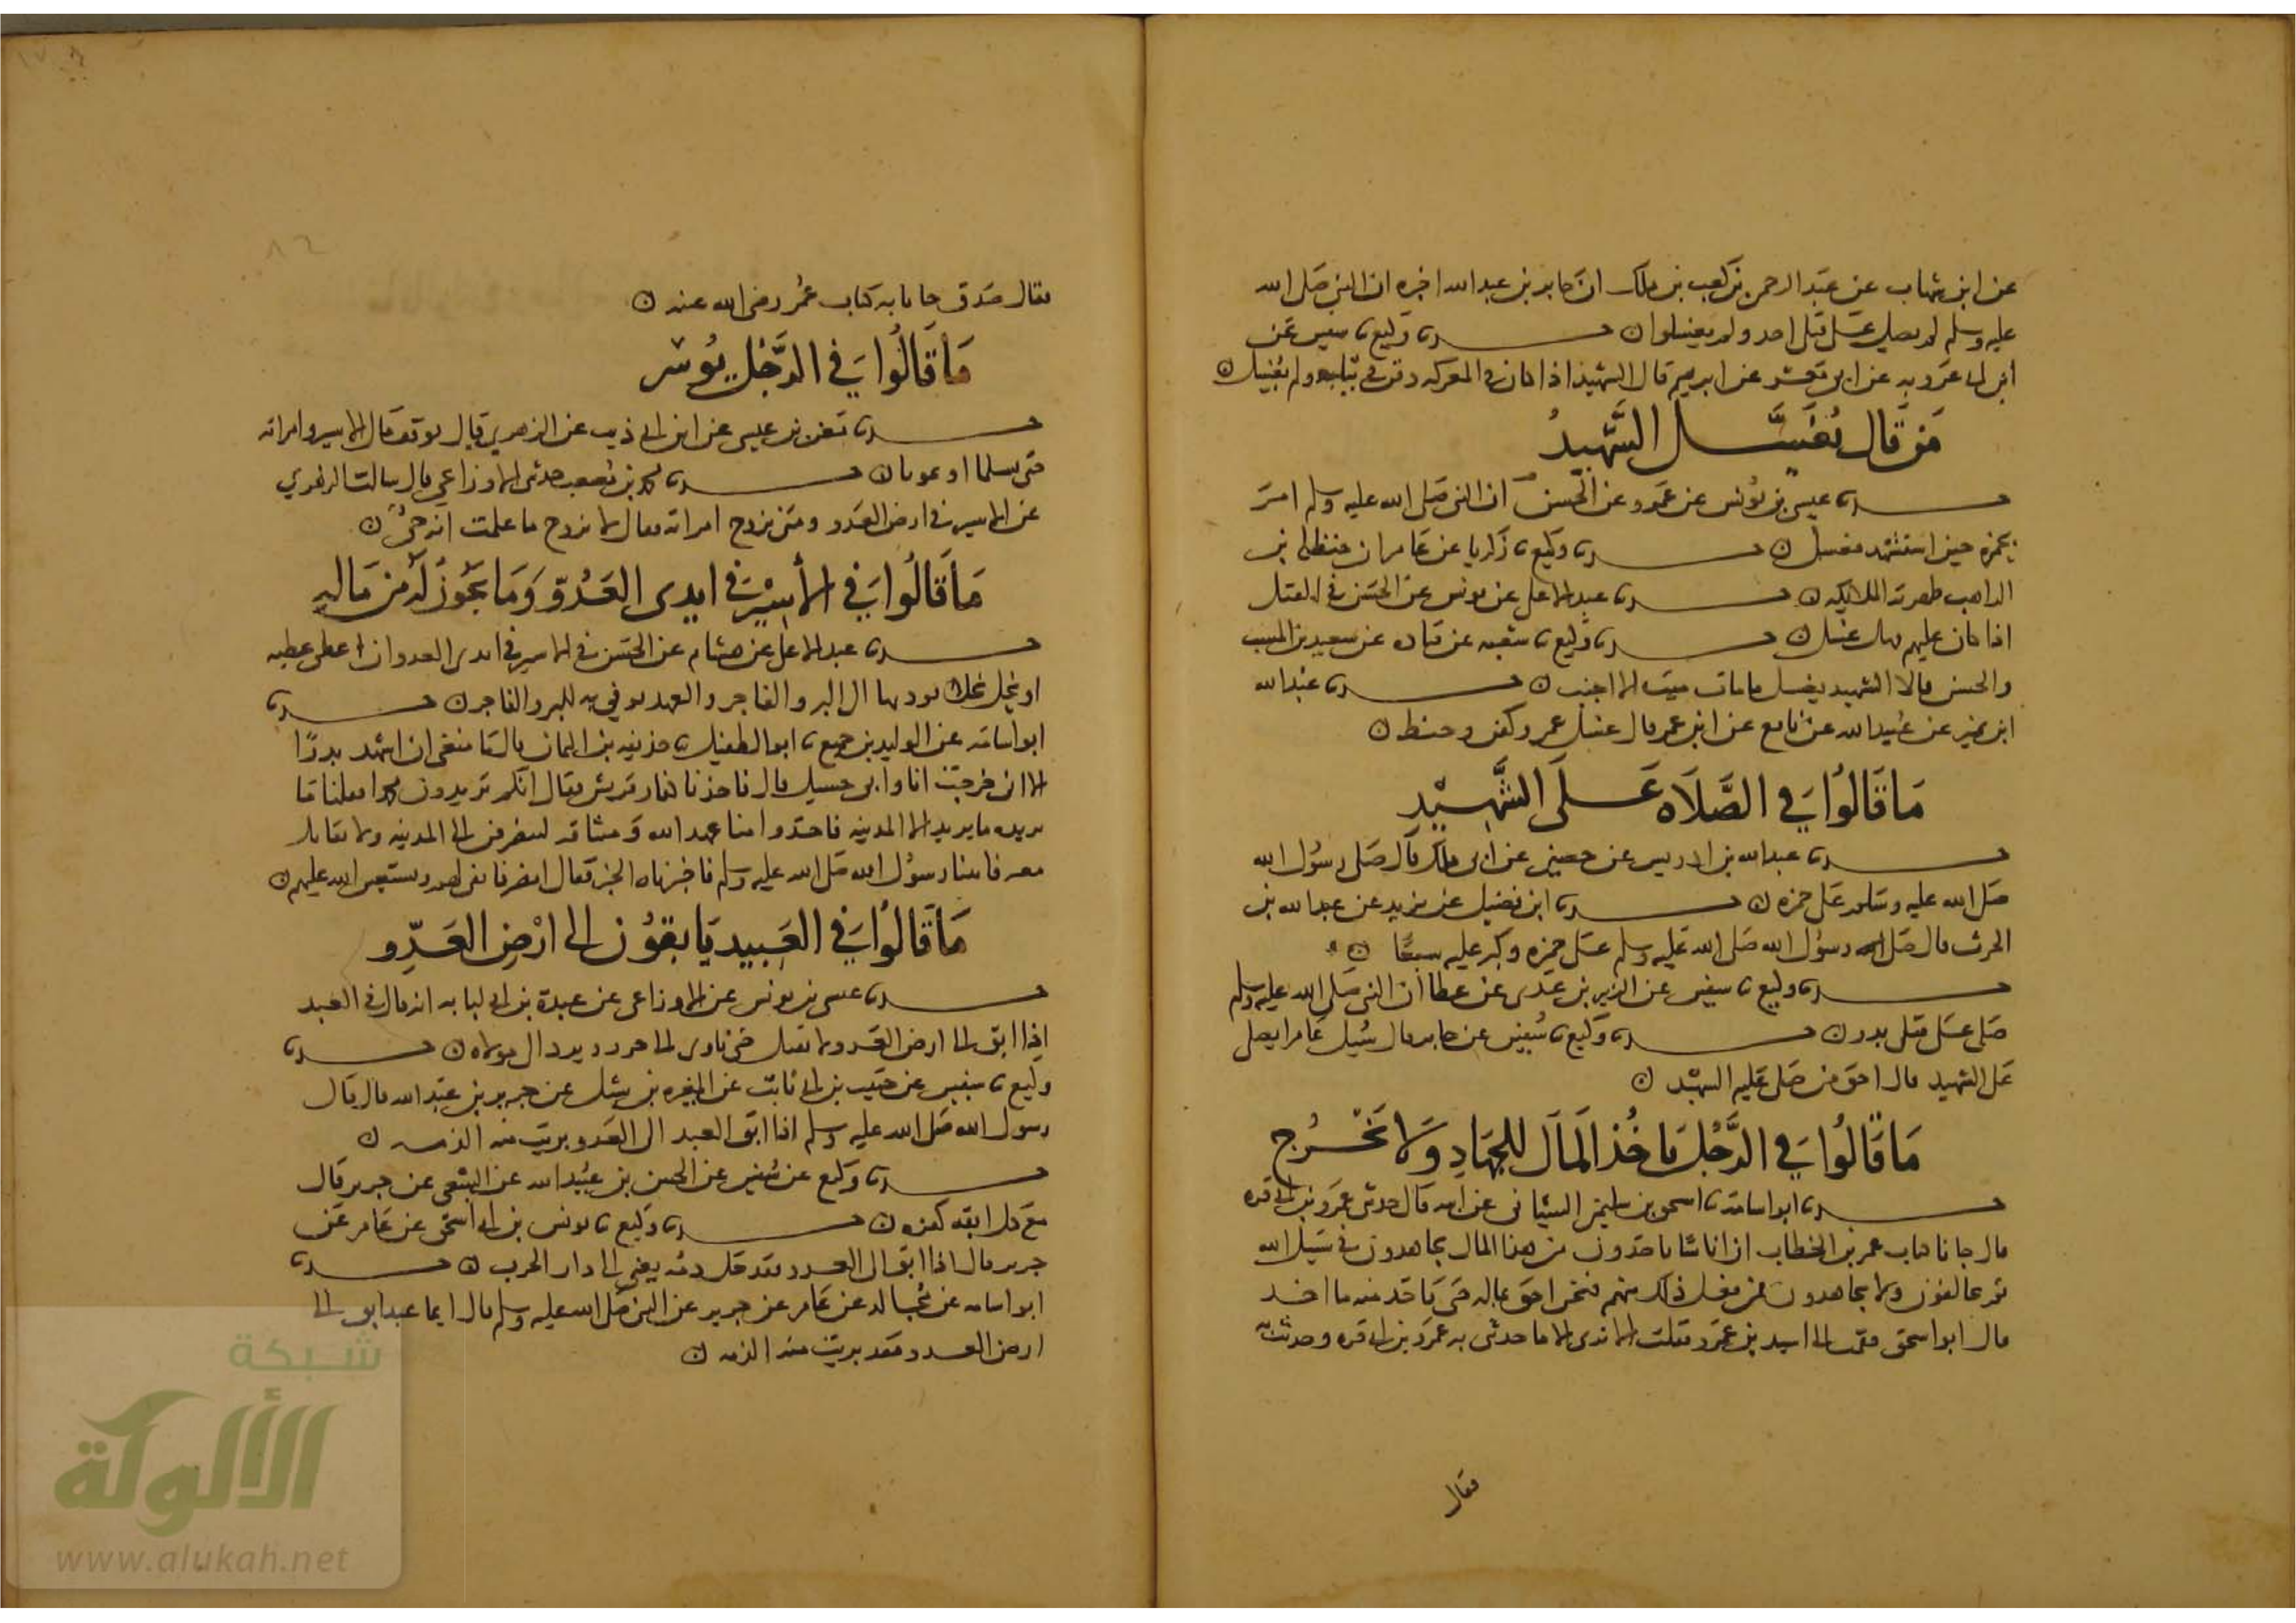 عن ابن شهاب عن عبد الرحمن بن كعب بن ملك ان جابر بن عبد الله اخبره ان النبي صلى الله
عليه وسلم لم يصل على قتلى احد ولم يغسلوا ن حدثنا وكيع نا سفين عن
ابن ابى عروبه عن ابى معشر عن ابرهيم قال الشهيد اذا كان فى المعركه دفن فى ثيابه ولم يغسل ن
من قال يغسل الشهيد
حدثنا عيسى بن يونس عن عمرو عن الحسن ان النبى صلى الله عليه وسلم امر
بحمزه حين استشهد فغسل ن حدثنا وكيع نا زكريا عن عامر ان حنظله بن
الراهب طهرته الملائكه ن حدثنا عبد الاعلى عن يونس عن الحسن فى القتيل
اذا كان عليهم مهل غسل ن حدثنا وكيع نا شعبه عن قتاده عن سعيد بن المسيب
والحسن قالا الشهيد يغسل ما مات ميت الا اجنب ن حدثنا عبد الله
ابن نمير عن عبيد الله عن نافع عن ابن عمر قال غسل عمر وكفن وحنط ن
ما قالوا في الصلاه على الشهيد
حدثنا عبد الله بن ادريس عن حصين عن ابى ملك قال صلى رسول الله
صلى الله عليه وسلم على حمزه ن حدثنا ابن فضيل عن يزيد عن عبد الله بن
الحرث قال صلى رسول الله صلى الله عليه وسلم على حمزه وكبر عليه سبعًا ن
حدثنا وكيع نا سفين عن الزبير بن عدى عن عطا ان النبى صلى الله عليه وسلم
صلى على قتلى بدر ن حدثنا وكيع نا سفين عن جابر قال سئل عامر ايصلى
على الشهيد قال احق من صلى عليه الشهيد ن
ما قالوا في الرجل ياخذ المال للجهاد ولا يخرج
حدثنا ابو اسامة نا اسحق بن سليمن الشيبانى عن ابيه قال حدثنى عمرو بن ابى قره
قال جانا كتاب عمر بن الخطاب ان اناسا ياخذون من هذا المال يجاهدون فى سبيل الله
ثم يخالفون ولا يجاهدون فمن فعل ذلك منهم فنحن احق بماله حتى ناخذ منه ما اخذ
قال ابو اسحق فقمت الى اسير بن عمرو فقلت الا ترى الى ما حدثنى به عمرو بن ابى قره وحدثته به
فقال
فقال صدق جانا به كتاب عمر رضى الله عنه ن
ما قالوا في الرجل يوسر
حدثنا معن بن عيسى عن ابن ابى ذيب عن الزهري قال يوقف مال الاسير وامراته
حتى يسلما او يموتا ن حدثنا محمد بن مصعب حدثنى الاوزاعي قال سالت الزهري
عن الاسير فى ارض العدو ومتى تزوج امراته فقال لا تزوج ما علمت انه حيٌ ن
ما قالوا في الأسير فى ايدى العدوّ وما يجوز له من ماله
حدثنا عبد الاعلى عن هشام عن الحسن فى الاسير فى ايدى العدو ان اعطى عطيه
او نحل نحلا يودها الى البر والفاجر والعهد يوفى به للبر والفاجر ن حدثنا
ابو اسامه عن الوليد بن جميع نا ابو الطفيل نا حذيفه بن اليمان قال ما منعنى ان اشهد بدرًا
الا انى خرجت انا وابى حسيل قال فاخذنا كفار قريش فقال انكم تريدون محمدا فقلنا ما
نريده ما نريد الا المدينه فاخذوا منا عهد الله وميثاقه لننصرفن الى المدينه ولا نقاتل
معه فاتينا رسول الله صلى الله عليه وسلم فاخبرناه الخبر فقال انصرفا نفى لهم ونستعين الله عليهم ن
ما قالوا في العبيد يابقون الى ارض العدو
حدثنا عيسى بن يونس عن الاوزاعى عن عبدة بن ابى لبابه انه قال فى العبد
إذا ابق الى ارض العدو لا تقبل حتى تاوى الى حرز ويرد الى مولاه ن حدثنا
وكيع نا سفين عن حبيب بن ابى ثابت عن المغيره بن شبل عن جرير بن عبد الله قال قال
رسول الله صلى الله عليه وسلم اذا ابق العبد الى العدو بريت منه الذمه ن
حدثنا وكيع عن سفين عن الحسن بن عبيد الله عن الشعبى عن جرير قال
مع كل ابقه كفره ن حدثنا وكيع نا يونس بن ابى اسحق عن عامر عن
جرير قال اذا ابق الى العدو فقد حل دمه يعنى الى دار الحرب ن حدثنا
ابو اسامه عن مجالد عن عامر عن جرير عن النبى صلى الله عليه وسلم قال ايما عبد ابق الى
ارض العدو فقد بريت منه الذمه ن
شبكة
الألوكة
www.alukah.net